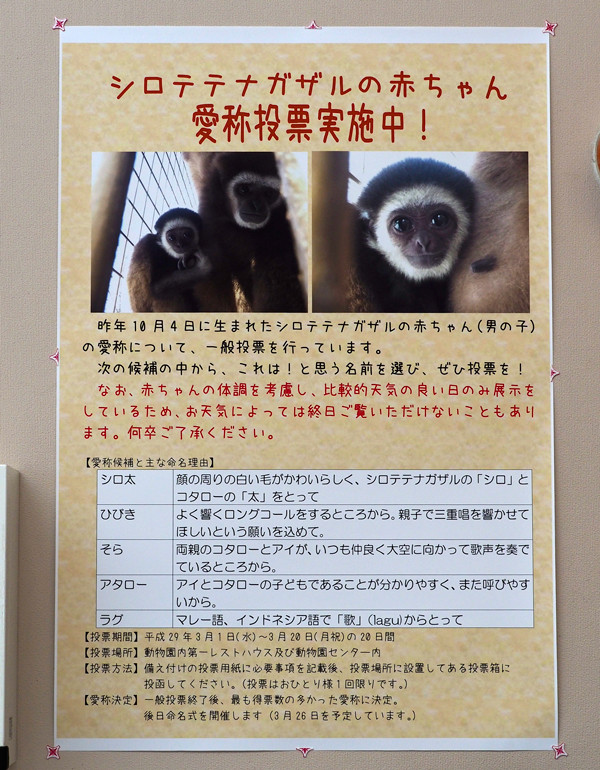 シロテテナガザルの赤ちゃん
愛称投票実施中！
昨年10月4日に生まれたシロテテナガザルの赤ちゃん(男の子)
の愛称について、一般投票を行っています。
次の候補の中から、これは！と思う名前を選び、ぜひ投票を！
なお、赤ちゃんの体調を考慮し、比較的天気の良い日のみ展示を
しているため、お天気によっては終日ご覧いただけないこともあり
ます。何卒ご了承ください。
【愛称候補と主な命名理由】
シロ太 顔の周りの白い毛がかわいらしく、シロテテナガザルの「シロ」と
コタローの「太」をとって
ひびき よく響くロングコールをするところから。親子で三重唱を響かせて
ほしいという願いを込めて。
そら 両親のコタローとアイが、いつも仲良く大空に向かって歌声を奏で
ているところから。
アタロー アイとコタローの子どもであることが分かりやすく、また呼びやす
いから。
ラグ マレー語、インドネシア語で「歌」(lagu)からとって
【投票期間】平成29年3月1日(水)～3月20日(月祝)の20日間
【投票場所】動物園内第一レストハウス及び動物園センター内
【投票方法】備え付けの投票用紙に必要事項を記載後、投票場所に設置してある投票箱に
投函してください。(投票はおひとり様1回限りです。)
【愛称決定】一般投票終了後、最も得票数の多かった愛称に決定。
後日命名式を開催します(3月26日を予定しています。)